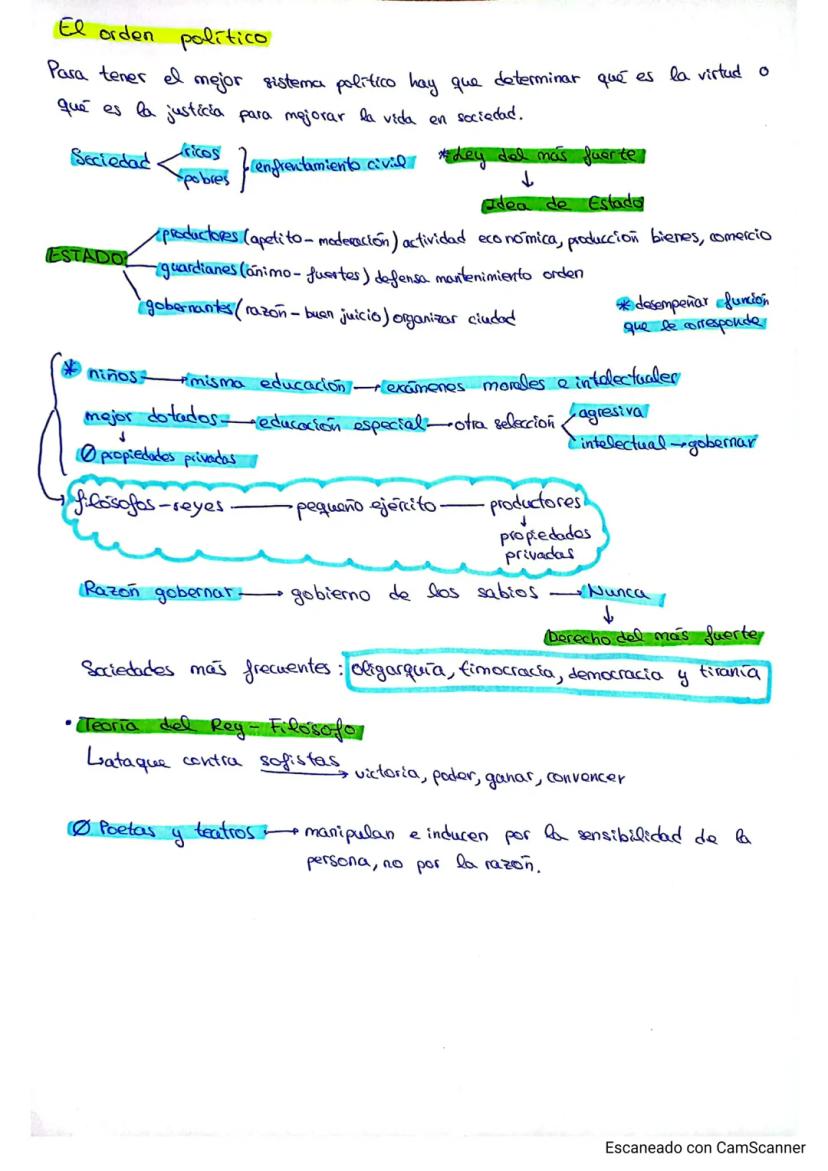 El orden político
Para tener el mejor sistema político hay que determinar qué es la virtud o
qué es la justicia para mejorar la vida en sociedad.
Sociedad ricos pobres } enfrentamiento civil
*Ley del más fuerte
↓
Idea de Estado
ESTADO
productores (apetito - moderación) actividad económica, producción bienes, comercio
guardianes (ánimo - fuertes) defensa mantenimiento orden
gobernantes (razón - buen juicio) organizar ciudad
* desempeñar función
que le corresponde
* niños → misma educación → exámenes morales e intelectuales
mejor dotados → educación especial → otra selección
agresiva
intelectual → gobernar
↓
Ø propiedades privadas
filósofos - reyes — pequeño ejército — productores
↓
propiedades
privadas
Razón gobernar → gobierno de los sabios → Nunca
↓
Derecho del más fuerte
Sociedades más frecuentes: oligarquía, timocracia, democracia y tiranía
• Teoría del Rey - Filósofo
ataque contra sofistas → victoria, poder, ganar, convencer
Ø Poetas y teatros → manipulan e inducen por la sensibilidad de la
persona, no por la razón.
Escaneado con CamScanner